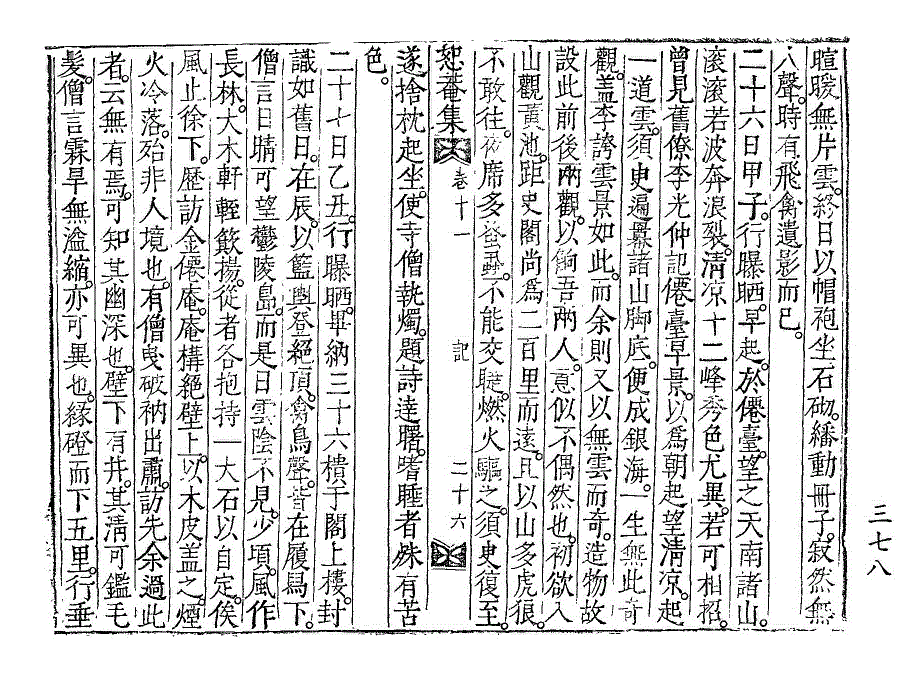 暄暖無片雲。終日以帽袍坐石砌。繙動冊子。寂然無
人聲。時有飛禽遺影而已。
二十六日甲子。行曝晒。早起。於僊臺。望之天南諸山。
滾滾若波奔浪裂。清凉十二峰秀色尤異。若可相招。
曾見舊僚李光仲記僊臺早景。以爲朝起望清凉。起
一道雲。須臾遍羃諸山脚底。便成銀海。一生無此奇
觀。盖李誇雲景如此。而余則又以無雲而奇。造物故
設此前後兩觀。以餉吾兩人。意似不偶然也。初欲入
山觀黃池。距史閣尚爲二百里而遠。且以山多虎狼。
不敢往。夜席多蚤蝨。不能交睫。燃火驅之。須臾復至。
恕菴集 卷十一 記 二十六
遂捨枕起坐。使寺僧執燭。題詩達曙。嗜睡者殊有苦
色。
二十七日乙丑。行曝晒。畢納三十六樻于閣上樓。封
識如舊日。在辰。以籃輿登絕頂。禽鳥聲。皆在履舄下。
僧言日晴可望鬱陵島。而是日雲陰不見。少頃。風作
長林。大木軒輕簸揚。從者各抱持一大石以自定。俟
風止徐下。歷訪金僊庵。庵構絕壁上。以木皮盖之。煙
火冷落。殆非人境也。有僧曳破衲出肅。訪先余過此
者。云無有焉。可知其幽深也。壁下有井。其淸可鑑毛
髮。僧言霖旱無溢縮。亦可異也。緣磴而下五里。行垂
三七八